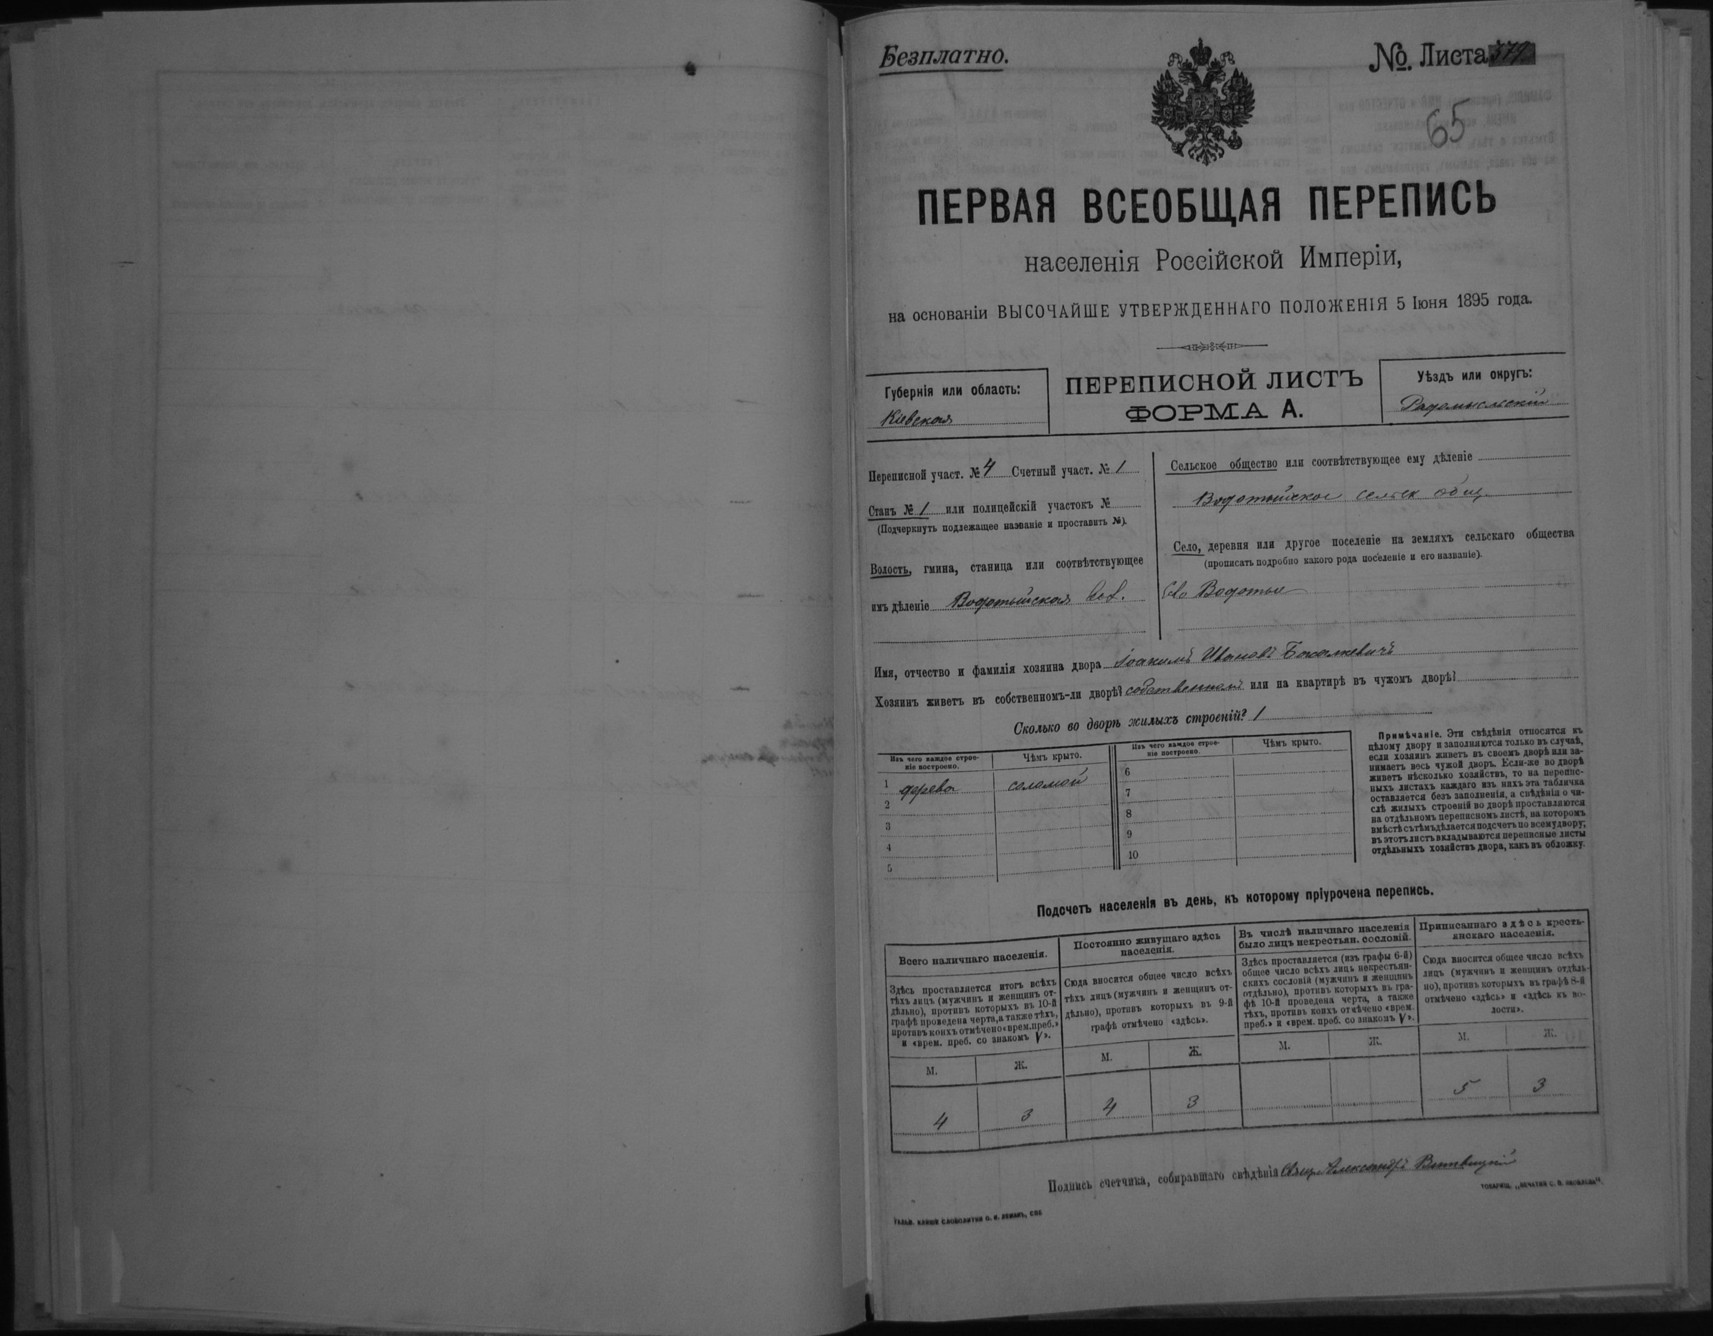 Безплатно.
№. Листа 379
65
ПЕРВАЯ ВСЕОБЩАЯ ПЕРЕПИСЬ
населенія Россійской Имперіи,
на основаніи ВЫСОЧАЙШЕ УТВЕРЖДЕННАГО ПОЛОЖЕНІЯ 5 Іюня 1895 года.
Губернія или область:
Кіевская
ПЕРЕПИСНОЙ ЛИСТЪ
ФОРМА А.
Уѣздъ или округъ:
Радомысльскій
Переписной участ. № 4 Счетный участ. № 1
Станъ № 1 или полицейскій участокъ №
(Подчеркнуть подлежащее названіе и проставить №).
Волость, гмина, станица или соотвѣтствующее
имъ дѣленіе Водотыйская вол.
Сельское общество или соотвѣтствующее ему дѣленіе
Водотыйское сельск общ.
Село, деревня или другое поселеніе на земляхъ сельскаго общества
(прописать подробно какого рода поселеніе и его названіе).
Село Водотыи
Имя, отчество и фамилія хозяина двора Іоакимъ Ивановъ
Хозяинъ живетъ въ собственномъ-ли дворѣ? собственномъ или на квартирѣ въ чужомъ дворѣ?
Сколько во дворѣ жилыхъ строеній? 1
Изъ чего каждое строе-
ніе построено.
Чѣмъ крыто.
Изъ чего каждое строе-
ніе построено.
Чѣмъ крыто.
1 дерева соломой
2
3
4
5
6
7
8
9
10
Примѣчаніе. Эти свѣдѣнія относятся къ
цѣлому двору и заполняются только въ случаѣ,
если хозяинъ живетъ въ своемъ дворѣ или за-
нимаетъ весь чужой дворъ. Если-же во дворѣ
живетъ нѣсколько хозяйствъ, то на перепис-
ныхъ листахъ каждаго изъ нихъ эта табличка
оставляется безъ заполненія, а свѣдѣнія о чи-
слѣ жилыхъ строеній во дворѣ проставляются
на отдѣльномъ переписномъ листѣ, на которомъ
вмѣстѣ съ тѣмъ дѣлается подсчетъ по всему двору;
въ этотъ листъ вкладываются переписные листы
отдѣльныхъ хозяйствъ двора, какъ въ обложку.
Подсчетъ населенія въ день, къ которому пріурочена перепись.
Всего наличнаго населенія.
Здѣсь проставляется итогъ всѣхъ
тѣхъ лицъ (мужчинъ и женщинъ от-
дѣльно), противъ которыхъ въ 10-й
графѣ проведена черта, а также тѣхъ,
противъ коихъ отмѣчено «врем. преб.»
и «врем. преб. со знакомъ V».
М. Ж.
4 3
Постоянно живущаго здѣсь
населенія.
Сюда вносится общее число всѣхъ
тѣхъ лицъ (мужчинъ и женщинъ от-
дѣльно), противъ которыхъ въ 9-й
графѣ отмѣчено «здѣсь».
М. Ж.
4 3
Въ числѣ наличнаго населенія
было лицъ некрестьян. сословій.
Здѣсь проставляется (изъ графы 6-й)
общее число всѣхъ лицъ некрестьян-
скихъ сословій (мужчинъ и женщинъ
отдѣльно), противъ которыхъ въ гра-
фѣ 10-й проведена черта, а также
тѣхъ, противъ коихъ отмѣчено «врем.
преб.» и «врем. преб. со знакомъ V».
М. Ж.
Приписаннаго здѣсь кресть-
янскаго населенія.
Сюда вносится общее число всѣхъ
лицъ (мужчинъ и женщинъ отдѣль-
но), противъ которыхъ въ графѣ 8-й
отмѣчено «здѣсь» и «здѣсь къ во-
лости».
М. Ж.
5 3
Подпись счетчика, собиравшаго свѣдѣнія Александръ
ТОВАРИЩ. „ПЕЧАТНЯ С. П. ЯКОВЛЕВА“.